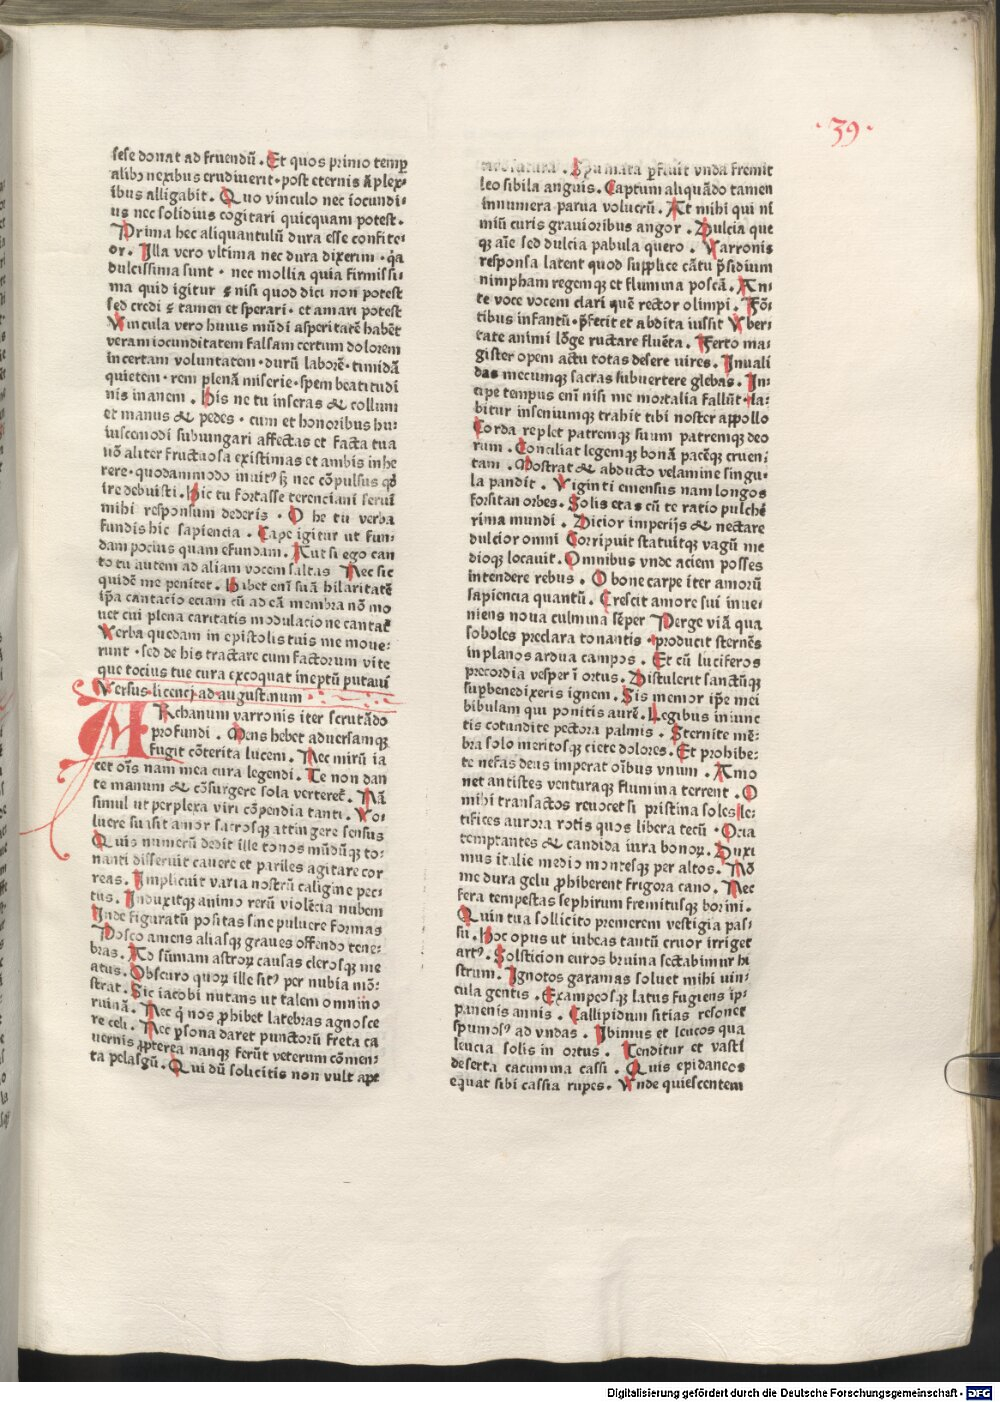 ·39·
sese donat ad fruendū. Et quos primo temp
alibꝫ nexibus erudiuerit· post eternis āplex-
ibus alligabit. Quo vinculo nec iocundi-
us nec solidius cogitari quicquam potest.
Prima hec aliquantulū dura esse confite-
or. Illa vero vltima nec dura dixerim· qꝛ
dulcissima sunt· nec mollia quia firmissi-
ma quid igitur ꝫ nisi quod dici non potest
sed credi ꝫ tamen et sperari· et amari potest
Vincula vero huius mūdi asperitatē habēt
veram iocunditatem falsam certum dolorem
incertam voluntatem· durū laborē· timidā
quietem· rem plenā miserie· spem beatitudi
nis inanem. His ne tu inseras & collum
et manus & pedes· cum et honoribus hu-
iuscemodi subiungari affectas et facta tua
nō aliter fructuosa existimas et ambis inhe
rere· quodammodo inuitꝰ sꝫ nec cōpulsus qͦ
ire debuisti. Hic tu fortasse terenciani serui
mihi responsum dederis. O he tu verba
fundis hic sapiencia. Cape igitur ut fun-
dam pocius quam efundam. Aut si ego can
to tu autem ad aliam vocem saltas Nec sic
quidē me penitet. Habet enī suā hilaritatē
ip̄a cantacio eciam cū ad eā membra nō mo
uet cui plena caritatis modulacione cantat̄
Verba quedam in epistolis tuis me moue-
runt· sed de his tractare cum factorum vite
que tocius tue cura excoquat ineptū putaui
Versus licencij ad augustinum
ARchanum varronis iter scrutādo
profundi. Mens hebet aduersamqꝫ
fugit cōterita lucem. Nec mirū ia
cet oīs nam mea cura legendi. Te non dan
te manum & cōsurgere sola veretē. Nā
simul ut perplexa viri cōpendia tanti. Vo-
luere suasit amor sacrosqꝫ attingere sensus
Quis numerū dedit ille tonos mūdūqꝫ to-
nanti disseruit cauere et pariles agitare cor
reas. Implicuit varia nostrū caligine pec-
tus. Induxitqꝫ animo rerū violēcia nubem
Inde figuratū positas sine puluere formas
Posco amens aliasqꝫ graues offendo tene-
bras. Ad sūmam astroꝝ causas clerosqꝫ me
atus. Obscuro quoꝝ ille sitꝰ per nubia mō-
strat. Sic iacobi nutans ut talem omnino
ruinā. Nec q̄ nos ꝓhibet latebras agnosce
re celi. Nec ꝑsona daret punctorū freta ca
uernis ꝓpterea nanqꝫ ferūt veterum cōmen-
ta pelasgū. Qui dū solicitis non vult ape
futura. Spumata ꝑfluit vnda fremit
leo sibila anguis. Captum aliquādo tamen
innumera parua volucrū. At mihi qui ni
miū curis grauioribus angor. Dulcia que
qꝫ aīe sed dulcia pabula quero. Varronis
responsa latent quod supplice cātu p̄sidium
nimpham regemqꝫ et flumina poscā. An-
te voce vocem clari quē rector olimpi. Fō-
tibus infantū· p̄fecit et abdita iussit Vber-
tate animi lōge ructare fluēta. Ferto ma-
gister opem actu totas desere vires. Inuali
das mecumqꝫ sacras subuertere glebas. In-
cipe tempus enī nisi me mortalia fallūt. la-
bitur inseniumqꝫ trahit tibi noster appollo
Corda replet patremqꝫ suum patremqꝫ deo
rum. Conciliat legemqꝫ bonā pacēqꝫ cruen-
tam. Mostrat & abducto velamine singu-
la pandit. Viginti emensus nam longos
forsitan orbes. Solis etas cū te ratio pulchē
rima mundi. Dicior imperijs & nectare
dulcior omni Corripuit statuitqꝫ vagū me
dioqꝫ locauit. Omnibus vnde aciem posses
intendere rebus. O bone carpe iter amorū
sapiencia quantū. Crescit amore sui inue-
niens noua culmina sēper Perge viā qua
soboles preclara tonantis· producit sternēs
in planos ardua campos. Et cū luciferos
precordia vesper ī ortus. Distulerit sanctūqꝫ
sup̄benedixeris ignem. Sis memor ip̄e mei
bibulam qui ponitis aurē. Legibus iniunc
tis cotundite pectora palmis. Sternite mē-
bra solo meritosqꝫ ciete dolores. Et prohibe-
te nefas deus imperat oībus vnum. Amo
net antistes venturaqꝫ flumina terrent. O
mihi transactos reuocet si pristina soles le-
tifices aurora rotis quos libera tecū. Ocia
temptantes & candida iura bonoꝝ. Duxi
mus italie medio montesqꝫ per altos. Nō
me dura gelu ꝓhiberent frigora cano. Nec
fera tempestas sephirum fremitusqꝫ borini.
Quin tua sollicito premerem vestigia pas-
su. Hoc opus ut iubeas tantū cruor irriget
artꝰ. Solsticion euros bruina sectabimur hi
strum. Ignotos garamas soluet mihi uin-
cula gentis. Exampeosqꝫ latus fugiens ip-
panenis annis. Callipidum sitias resonet
spumosꝰ ad vndas. Ibimus et leucos qua
leucia solis in ortus. Tenditur et vasti
deserta cacumina cassi. Quis epidaneos
equat sibi cassia rupes. Vnde quiescentem
Digitalisierung gefördert durch die Deutsche Forschungsgemeinschaft - DFG